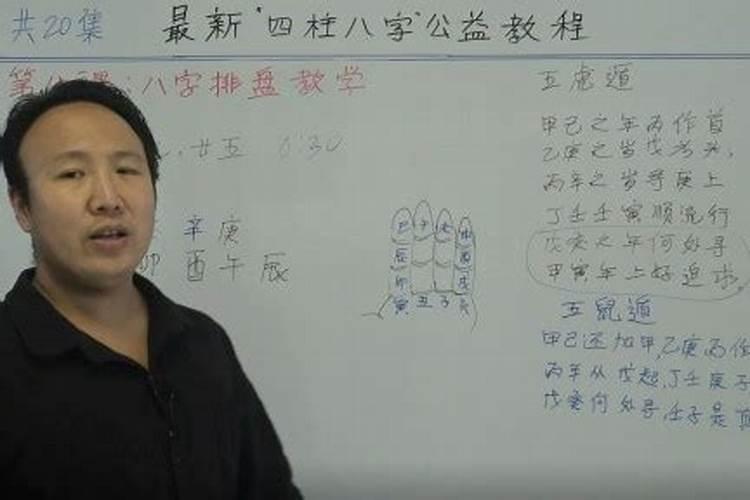 共20集
最新"四柱八字"公益教程
第八课:八字排盘教学
廿五 0:30
辛庚
卯 酉午辰
巳午未申
辰 酉
卯 戌
寅丑子亥
五虎遁
甲己之年丙作首
乙庚之岁戊为头,
丙辛之岁寻庚上
丁壬壬寅顺流行
戊癸之年何处寻
甲寅年上好追求,
五鼠遁
甲己还加甲,乙庚丙作
丙辛从戊起,丁壬庚子
戊癸何处寻,壬子是